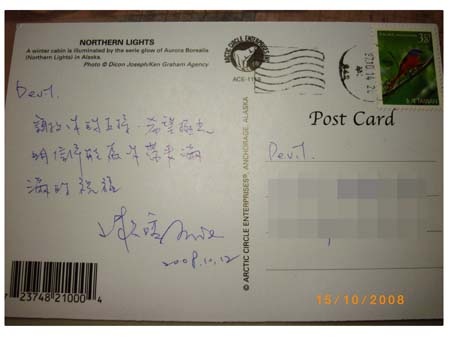 NORTHERN LIGHTS
A winter cabin is illuminated by the eerie glow of Aurora Borealis
(Northern Lights) in Alaska.
Photo © Dicon Joseph/Ken Graham Agency
ARCTIC CIRCLE ENTERPRISES
Devil.
希望極光
明信片能為你帶來滿
滿的祝福
2008.10.12
23748 21000 4
© ARCTIC CIRCLE ENTERPRISES® ANCHORAGE, ALASKA
TAIWAN
Post Card
Devil.
15/10/2008